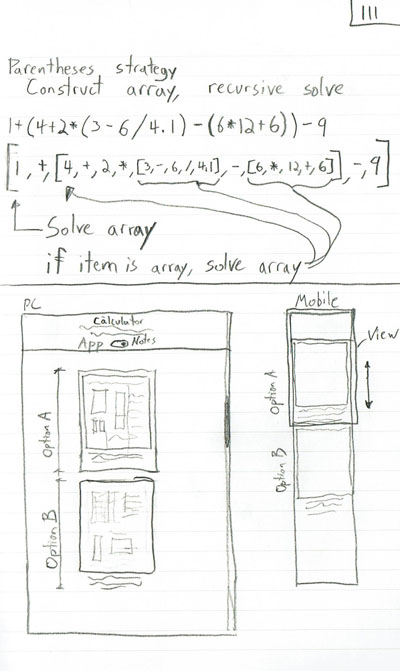 111
Parentheses strategy
Construct array, recursive solve
1+(4+2*(3-6/4.1)-(6*12+6))-9
[1,+,[4,+,2,*,[3,-,6,/,4.1],-,[6,*,12,+,6]],-,9]
Solve array
if item is array, solve array
PC
Calculator
App Notes
Option A
Option B
Mobile
View
Option A
Option B